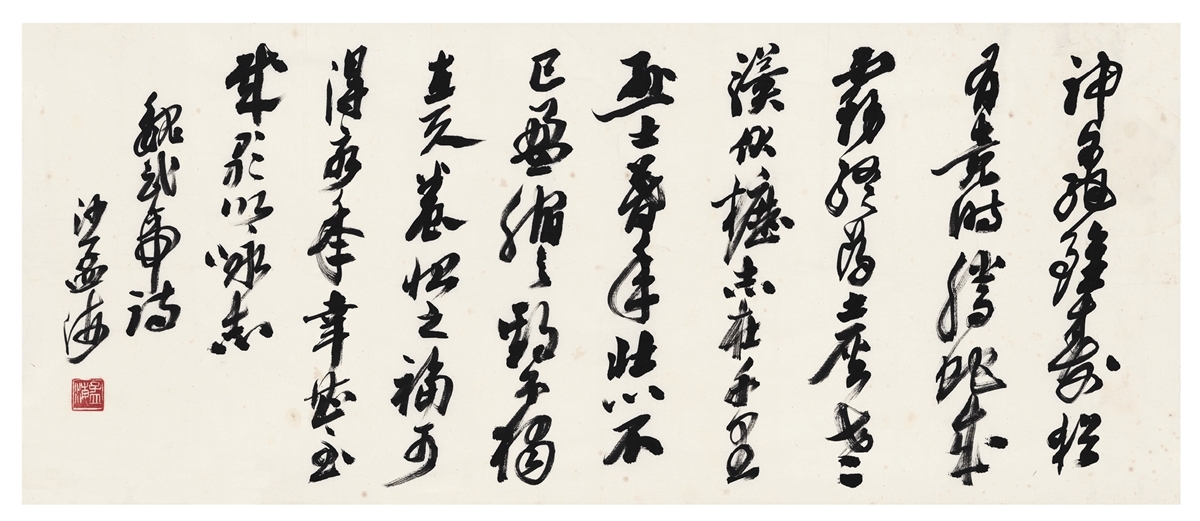 神龜雖壽猶
有竟時騰蛇成
霧終為土灰老
驥伏櫪志在千里
烈士暮年壯心不
已盈縮之期不獨
在天養怡之福可
得永年幸甚至
哉歌以詠志
魏武帝詩
沙孟海
孟海